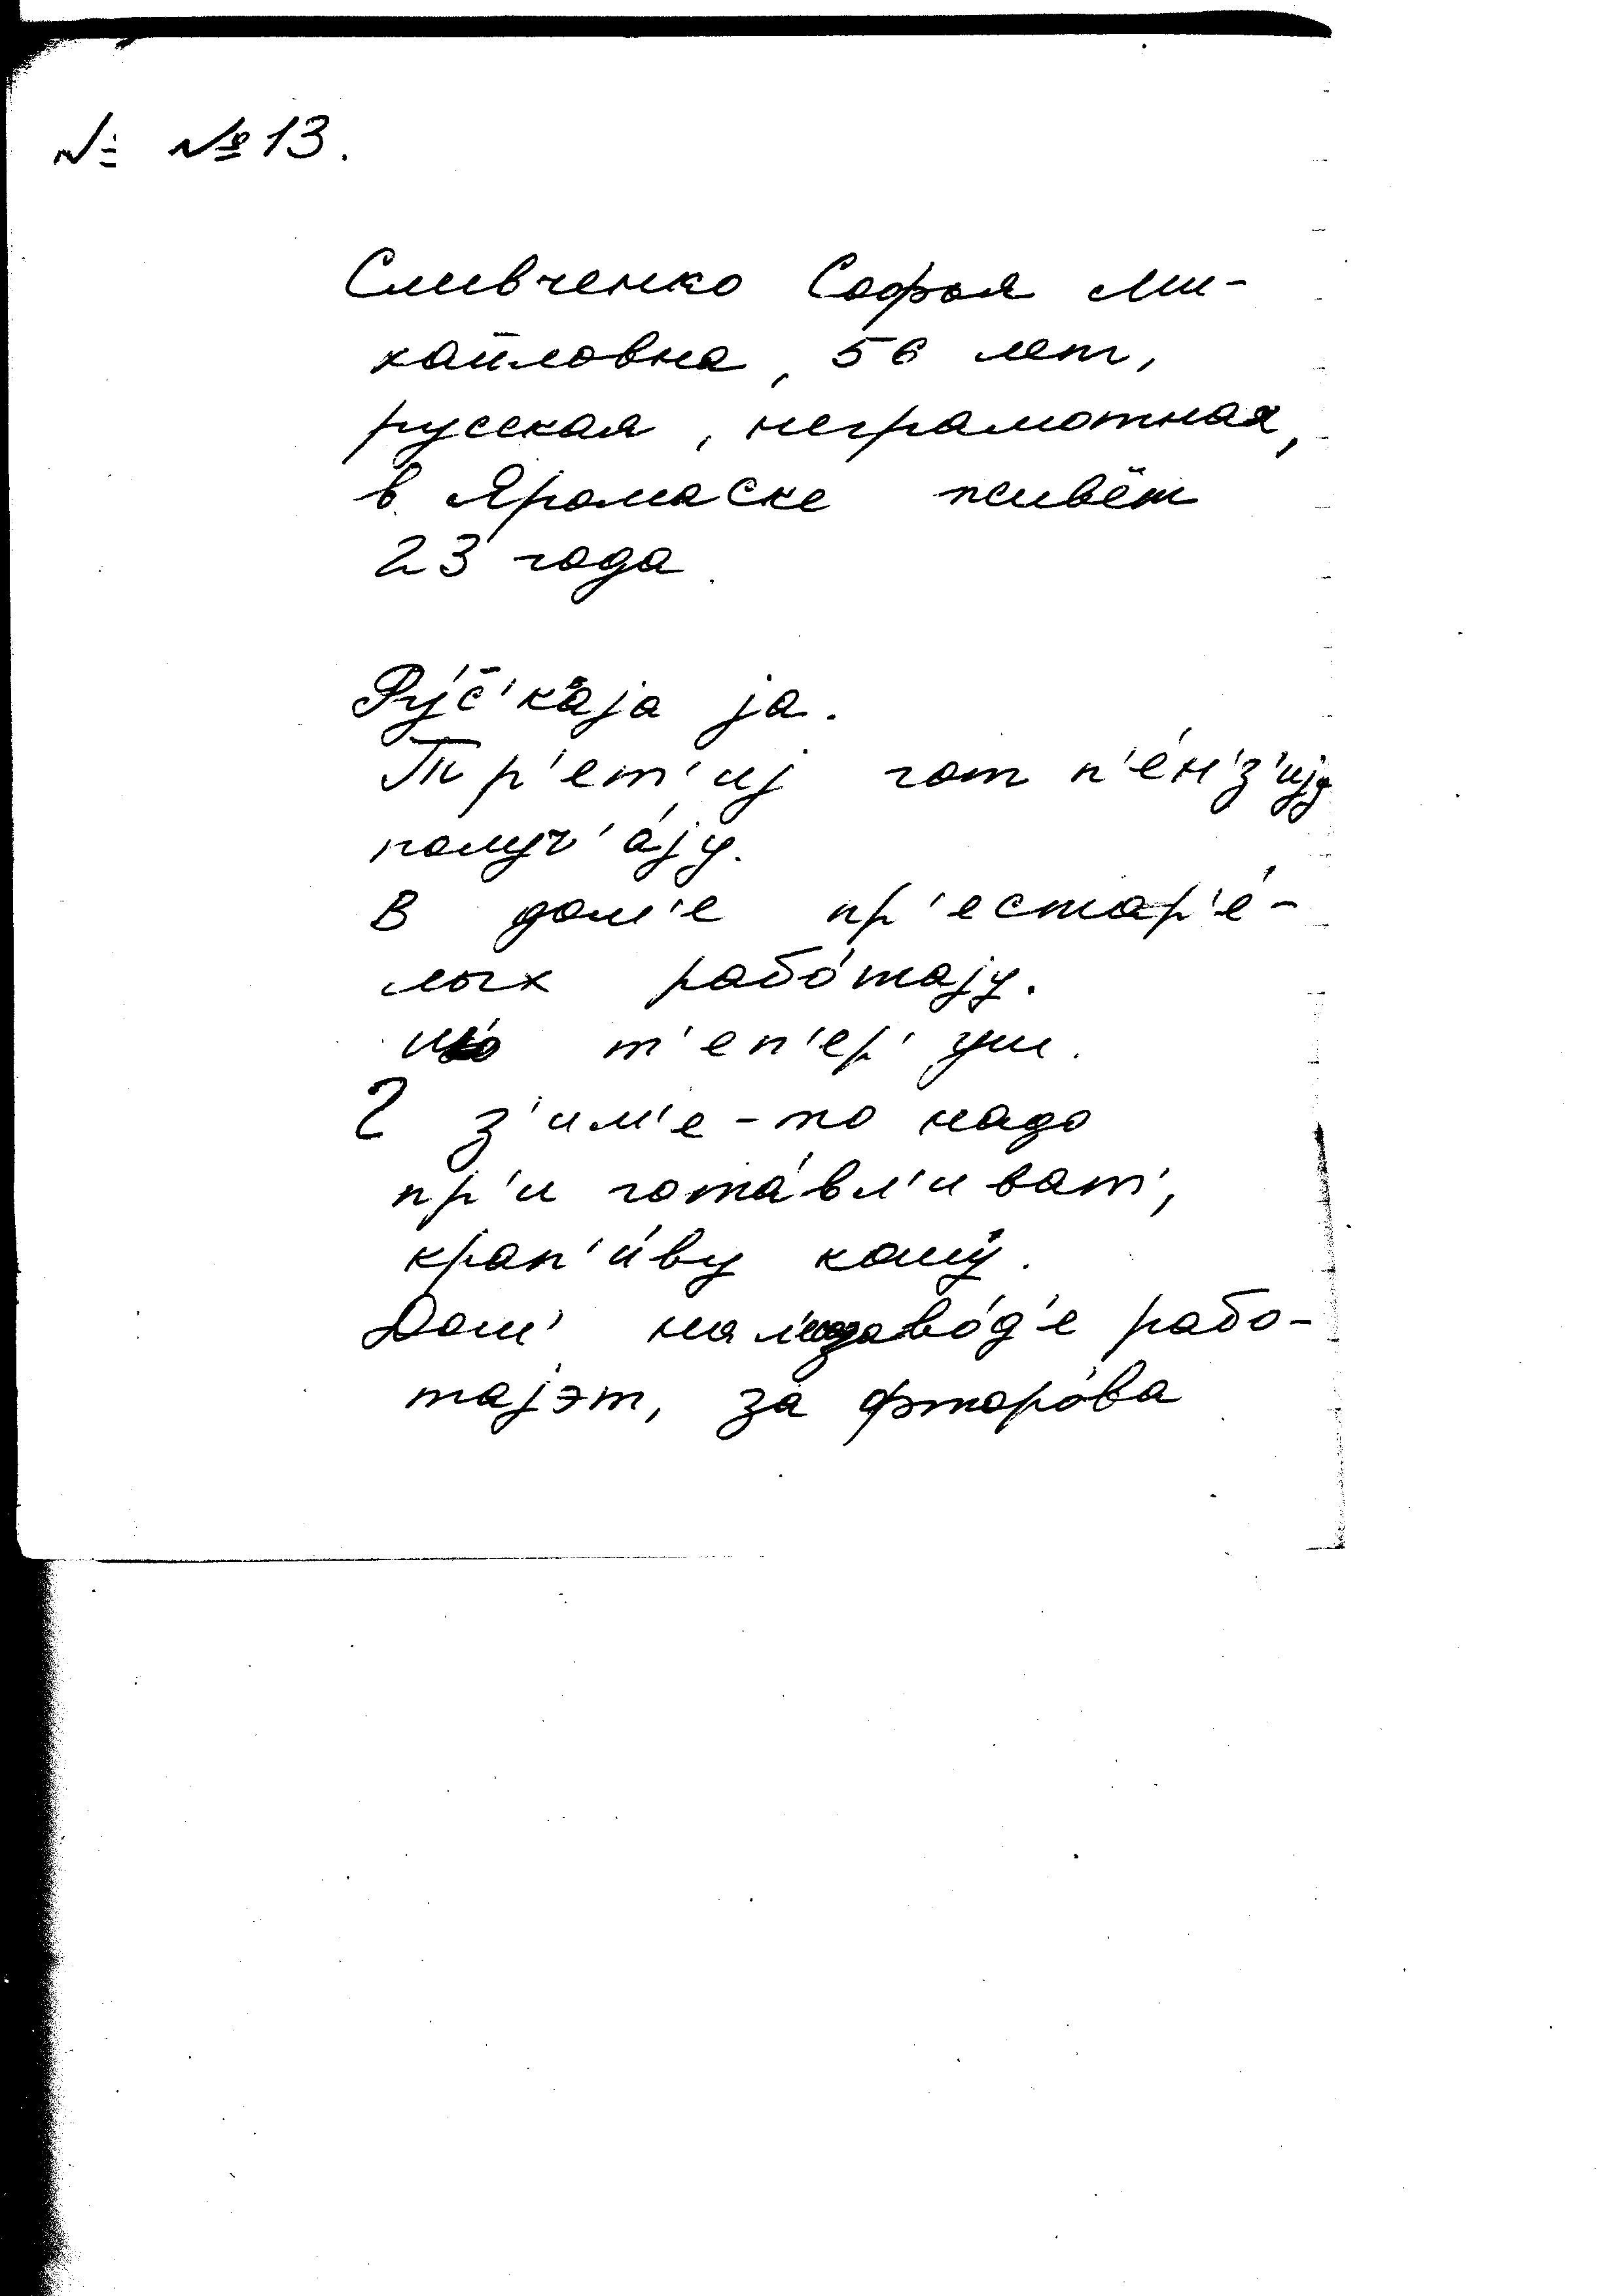 № №13.
Сливченко Софья Ми-
хайловна, 56 лет,
русская, неграмотная,
в Яромаске живёт
23 года.
Ру́с̄'каjа jа.
Тр'ет'иj гот п'е́н'з'иjу
получ'а́jу.
В дом'е пр'естар'е́-
лых рабо́таjу.
т'еп'ер' уш.
з'им'е-то надо
пр'игота́вл'иват',
крап'и́ву кошу́.
заво́д'е рабо-
таjэт, за фторо́ва